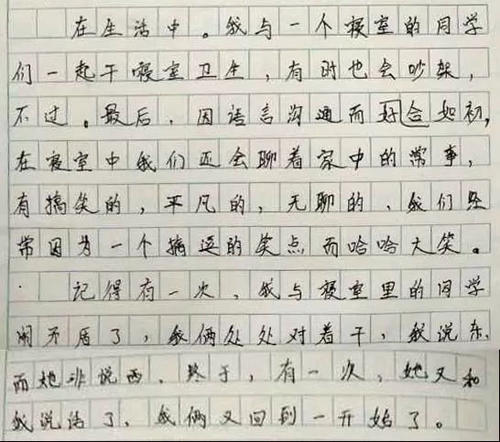 在生活中。我与一个寝室的同学
们一起干寝室卫生，有时也会吵架，
不过。最后，因语言沟通而好合如初，
在寝室中我们还会聊着家中的常事，
有搞笑的，平凡的，无聊的、我们经
常因为一个搞逗的笑点而哈哈大笑。
记得有一次、我与寝室里的同学
闹矛盾了，我俩处处对着干，我说东，
而她非说西、终于，有一次，她又和
我说话了，我俩又回到一开始了。